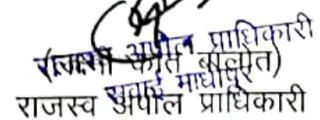 राजस्व अपील प्राधिकारी
बालोत)
सवाई माधोपुर
राजस्व अपील प्राधिकारी